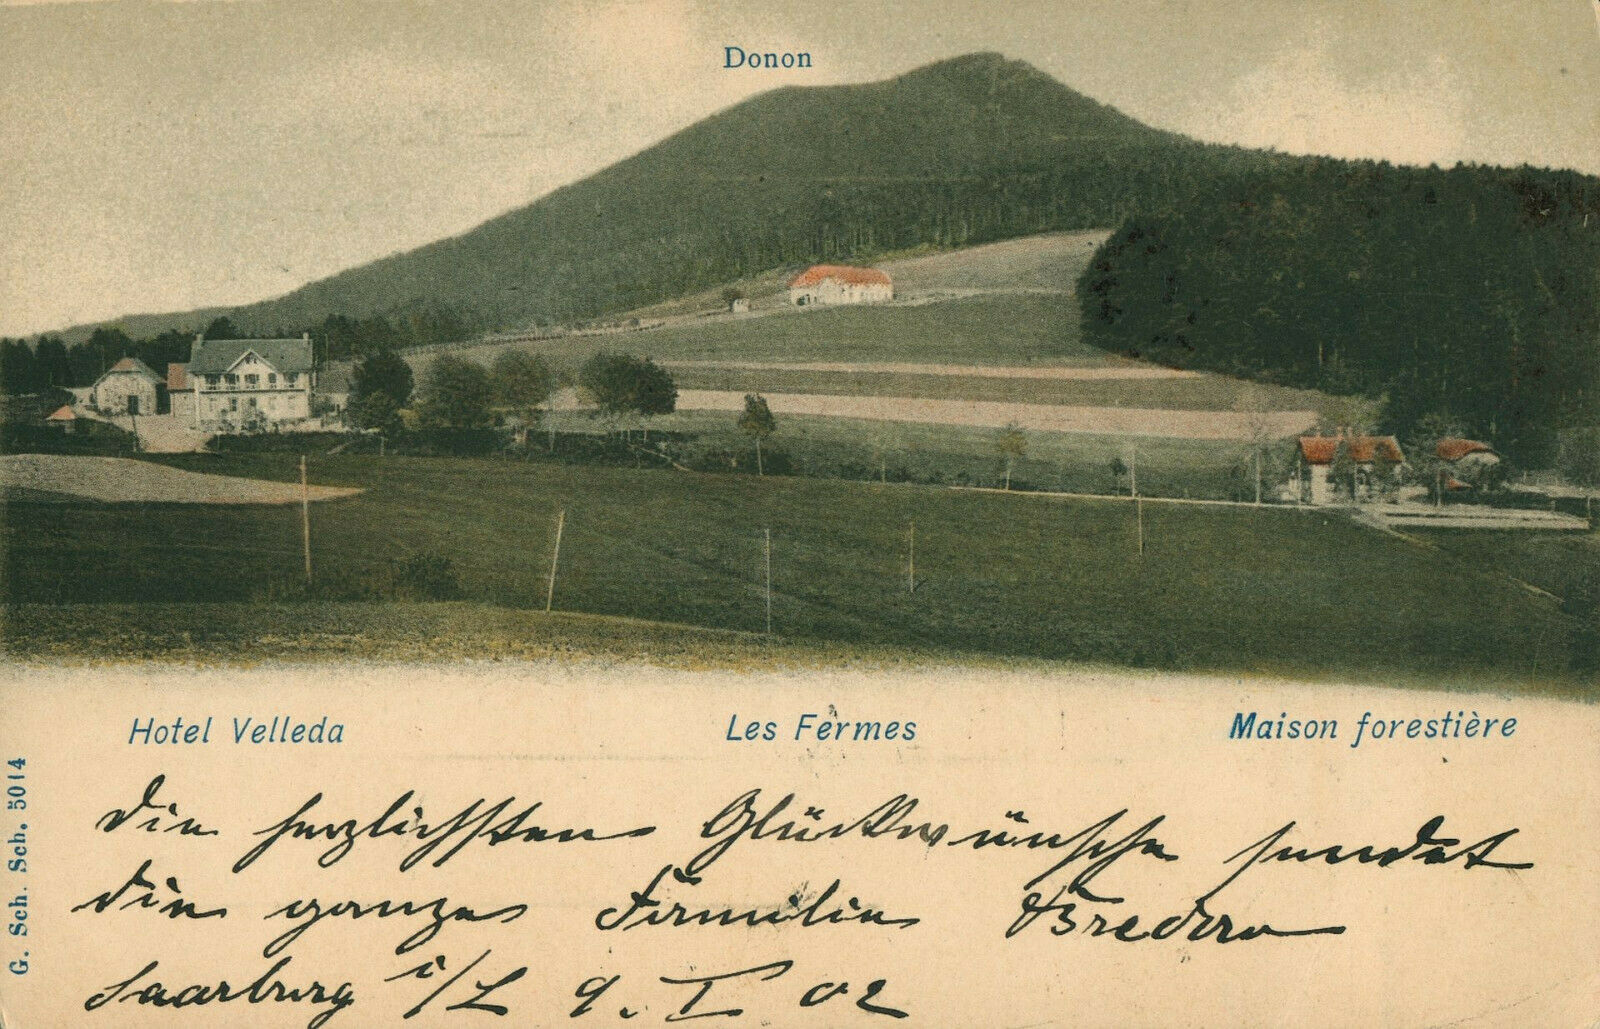 Donon
Hotel Velleda
Les Fermes
Maison forestière
G. Sch. Sch. 5014
Die herzlichsten Glückwünsche sendet
die ganze Familie
Saarburg i/L 9. I 02